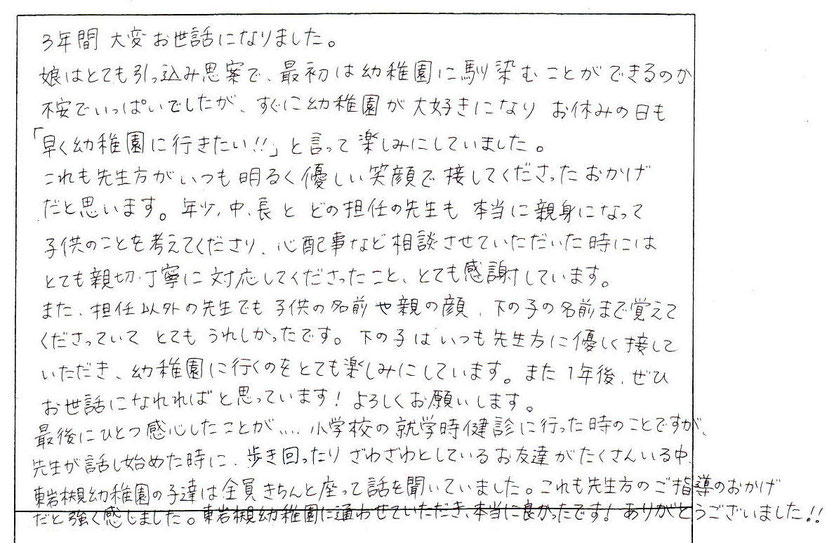 3年間 大変お世話になりました。
娘はとても引っ込み思案で、最初は幼稚園に馴染むことができるのか
不安でいっぱいでしたが、すぐに幼稚園が大好きになり お休みの日も
「早く幼稚園に行きたい!!」と言って楽しみにしていました。
これも先生方がいつも明るく優しい笑顔で接してくださったおかげ
だと思います。年少、中、長と どの担任の先生も 本当に親身になって
子供のことを考えてくださり、心配事など相談させていただいた時には
とても親切・丁寧に対応してくださったこと、とても感謝しています。
また、担任以外の先生でも子供の名前や親の顔、下の子の名前まで覚えて
くださっていて とてもうれしかったです。下の子はいつも先生方に優しく接して
いただき、幼稚園に行くのをとても楽しみにしています。また1年後、ぜひ
お世話になれればと思っています!よろしくお願いします。
最後にひとつ感心したことが…. 小学校の就学時健診に行った時のことですが、
先生が話し始めた時に、歩き回ったり ざわざわとしているお友達がたくさんいる中、
東岩槻幼稚園の子達は全員きちんと座って話を聞いていました。これも先生方のご指導のおかげ
だと強く感じました。東岩槻幼稚園に通わせていただき、本当に良かったです!ありがとうございました!!